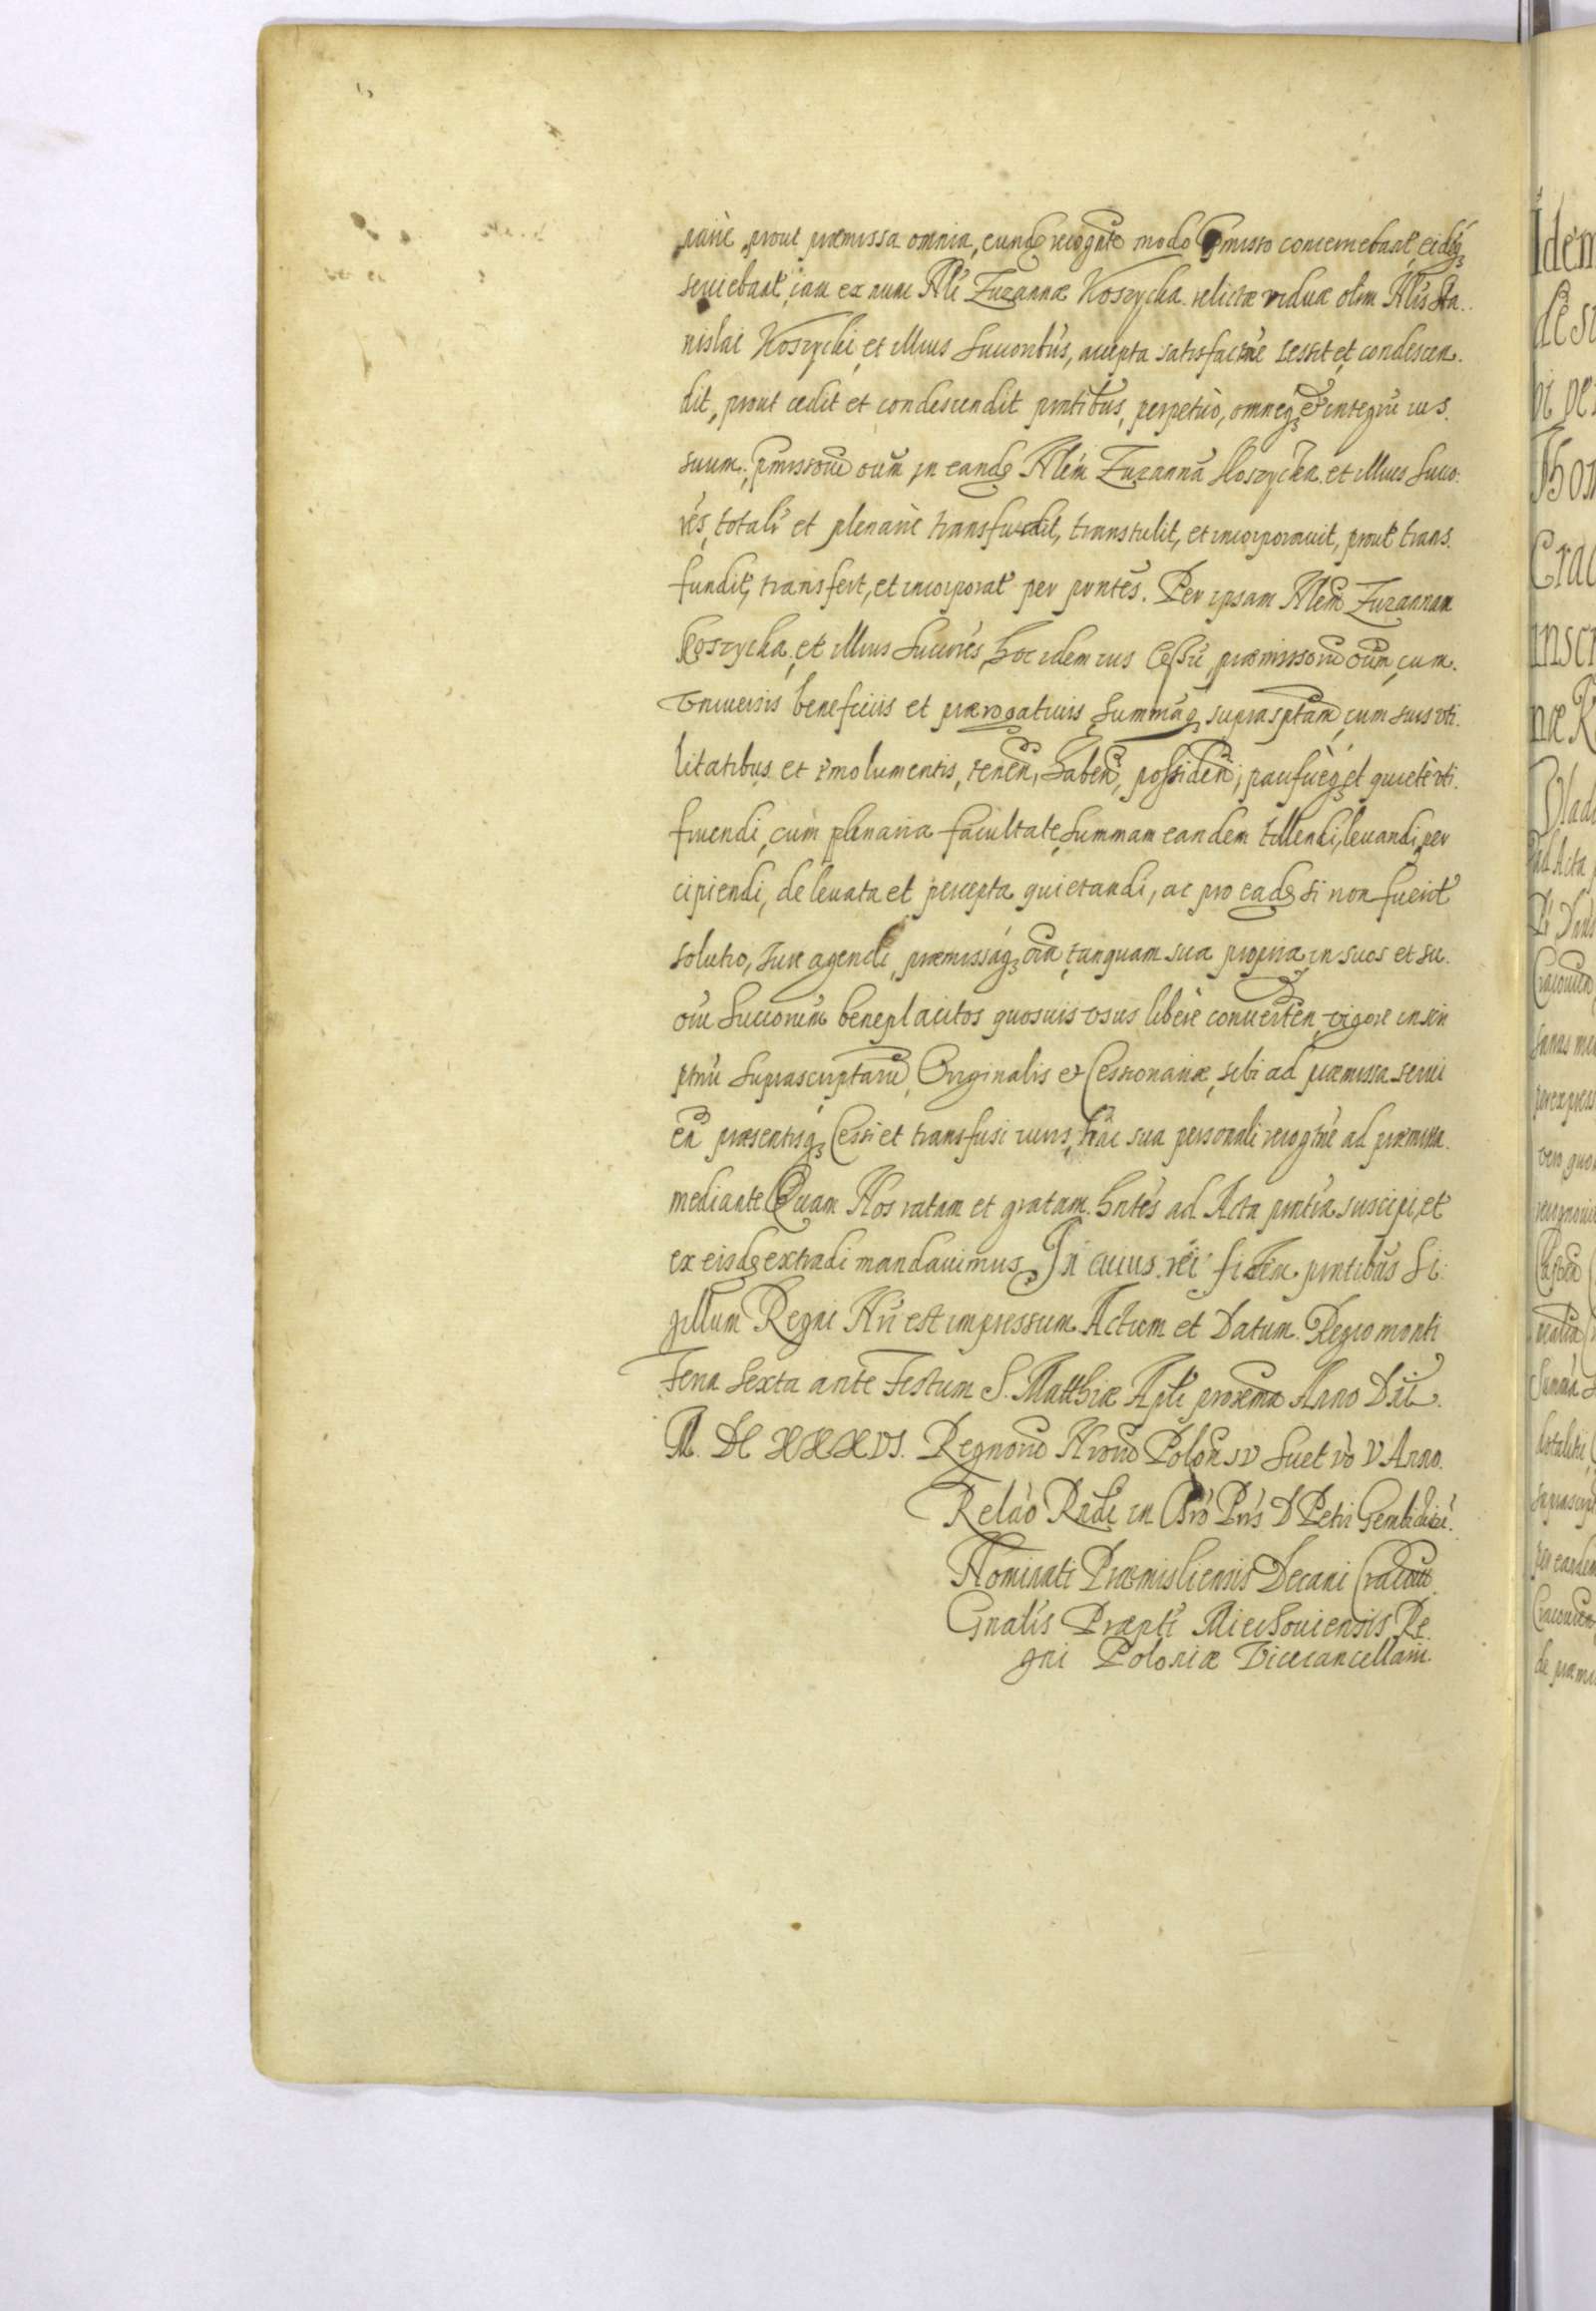 narie, prout præmissa omnia, eund recognte modo pmisso concernebant, eidq3
seruiebant, iam ex nunc Nli Zuzannæ Koszycka relictæ viduæ olim Nlis Sta
nislai Koszycki, et illius Succoribus, accepta satisfactne cessit et condescen
dit, prout cedit et condescendit pntibus, perpetuò, omneq3 et integrū ius
suum, pmissorū oium in eand Nlem Zuzannā Koszycka et illius Succo
res, totalr et plenariè transfudit, transtulit, et incorporauit, prout trans
fundit, transfert, et incorporat per pntes. Per ipsam Nlem Zuzannam
Koszycka, et illius Succores, hoc idem ius Cessū, præmissorū oium, cum
vniuersis beneficiis et prærogatiuis, Summāq3 suprasptam, cum suis vti
litatibus et emolumentis, tenen, haben, possiden, pacificeq3 et quietè vti
fruendi, cum plenaria facultate, Summam eandem tollendi, leuandi, per
cipiendi, de leuata et percepta quietandi, ac pro ead si non fuerit
solutio, Iure agendi, præmissaq3 oia, tanquam sua propria, in suos et su
orū Succorum beneplacitos quosuis vsus liberè conuerten, vigore inscri
ptnū Suprascriptarū, Originalis et Cessionariæ, sibi ad præmissa serui
en præsentisq3 Cessi et transfusi iuris, hac sua personali recogtne ad præmissa
mediante Quam Nos ratam et gratam hntes ad Acta pntia suscipi, et
ex eisd extradi mandauimus In cuius rei fidem pntibus Si
gillum Regni Nri est impressum. Actum et Datum Regiomonti
Feria Sexta ante Festum S. Matthiæ Apli proxima Anno Dni
M. DC XXXVI. Regnorū Nrorū Polon IV Suet vò V Anno
Relāo Rndi in Chrō Pris D Petri Gembicki
Nominati Præmisliensis Decani Cracou
Gnalis Præpti Miechouiensis Re
gni Poloniæ Vicecancellarii.